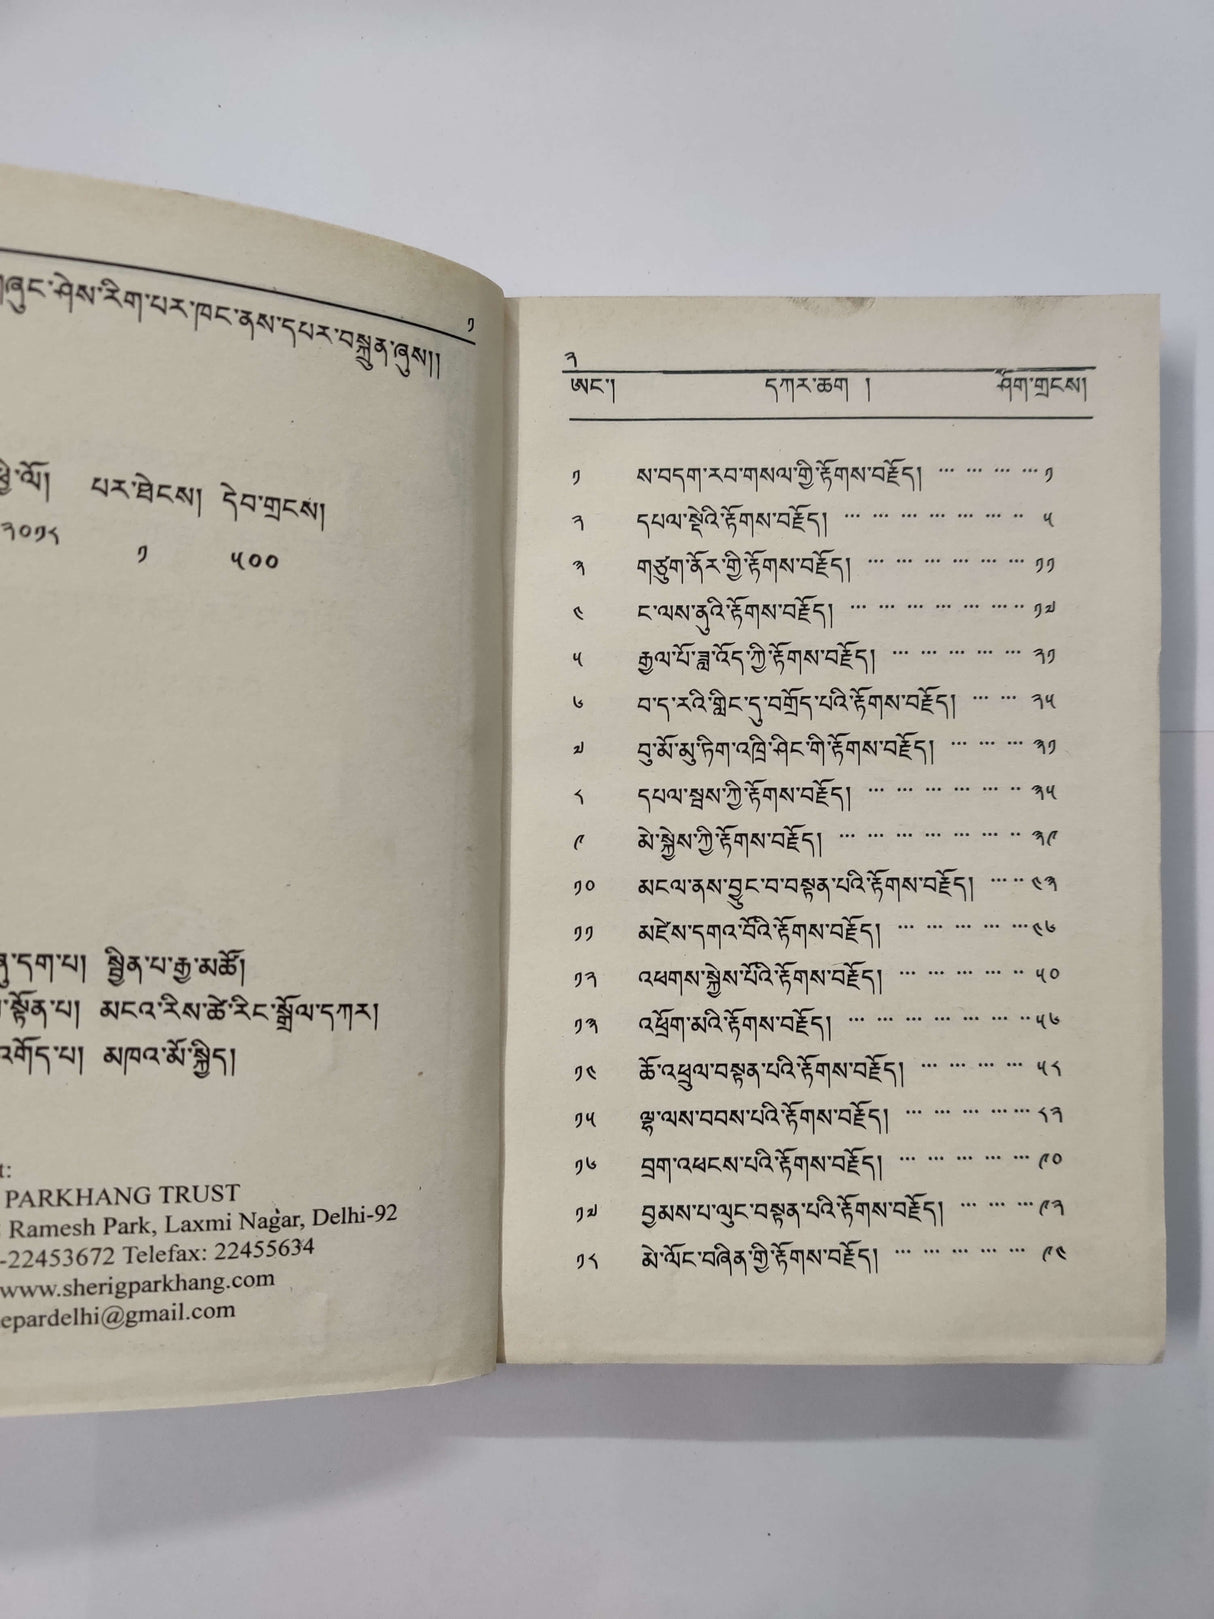 ༡
གཞུང་ཤེས་རིག་པར་ཁང་ནས་དཔར་བསྐྲུན་ཞུས།།
ཕྱི་ལོ། པར་ཐེངས། དེབ་གྲངས།
༢༠༡༨ ༡ ༥༠༠
དག་པ། སྦྱིན་པ་རྒྱ་མཚོ།
སྟོན་པ། མངའ་རིས་ཚེ་རིང་སྒྲོལ་དཀར།
འགོད་པ། མཁའ་མོ་སྐྱིད།
t:
PARKHANG TRUST
Ramesh Park, Laxmi Nagar, Delhi-92
-22453672 Telefax: 22455634
www.sherigparkhang.com
epardelhi@gmail.com
༢
ཨང་། དཀར་ཆག ། ཤོག་གྲངས།
༡ ས་བདག་རབ་གསལ་གྱི་རྟོགས་བརྗོད། ... ... ... ... ༡
༢ དཔལ་སྡེའི་རྟོགས་བརྗོད། ... ... ... ... ... ... .. ༥
༣ གཙུག་ནོར་གྱི་རྟོགས་བརྗོད། ... ... ... ... ... ... ༡༡
༤ ང་ལས་ནུའི་རྟོགས་བརྗོད། ... ... ... ... ... ... .. ༡༧
༥ རྒྱལ་པོ་ཟླ་འོད་ཀྱི་རྟོགས་བརྗོད། ... ... ... ... ... ༢༡
༦ བ་ད་རའི་གླིང་དུ་བགྲོད་པའི་རྟོགས་བརྗོད། ... ... ༢༥
༧ བུ་མོ་མུ་ཏིག་འཁྲི་ཤིང་གི་རྟོགས་བརྗོད། ... ... ... ༣༡
༨ དཔལ་སྦས་ཀྱི་རྟོགས་བརྗོད། ... ... ... ... ... .. ༣༥
༩ མེ་སྐྱེས་ཀྱི་རྟོགས་བརྗོད། ... ... ... ... ... ... .. ༣༩
༡༠ མངལ་ནས་བྱུང་བ་བསྟན་པའི་རྟོགས་བརྗོད། ... .. ༤༣
༡༡ མཛེས་དགའ་བོའི་རྟོགས་བརྗོད། ... ... ... ... ... ༤༦
༡༢ འཕགས་སྐྱེས་པོའི་རྟོགས་བརྗོད། ... ... ... ... ... ༥༠
༡༣ འཕྲོག་མའི་རྟོགས་བརྗོད། ... ... ... ... ... ... ... ༥༦
༡༤ ཆོ་འཕྲུལ་བསྟན་པའི་རྟོགས་བརྗོད། ... ... ... ... ༥༨
༡༥ ལྷ་ལས་བབས་པའི་རྟོགས་བརྗོད། ... ... ... ... ... ༨༢
༡༦ བྲག་འཕངས་པའི་རྟོགས་བརྗོད། ... ... ... ... ... ༩༠
༡༧ བྱམས་པ་ལུང་བསྟན་པའི་རྟོགས་བརྗོད། ... ... ... ༩༢
༡༨ མེ་ལོང་བཞིན་གྱི་རྟོགས་བརྗོད། ... ... ... ... ... ༩༤